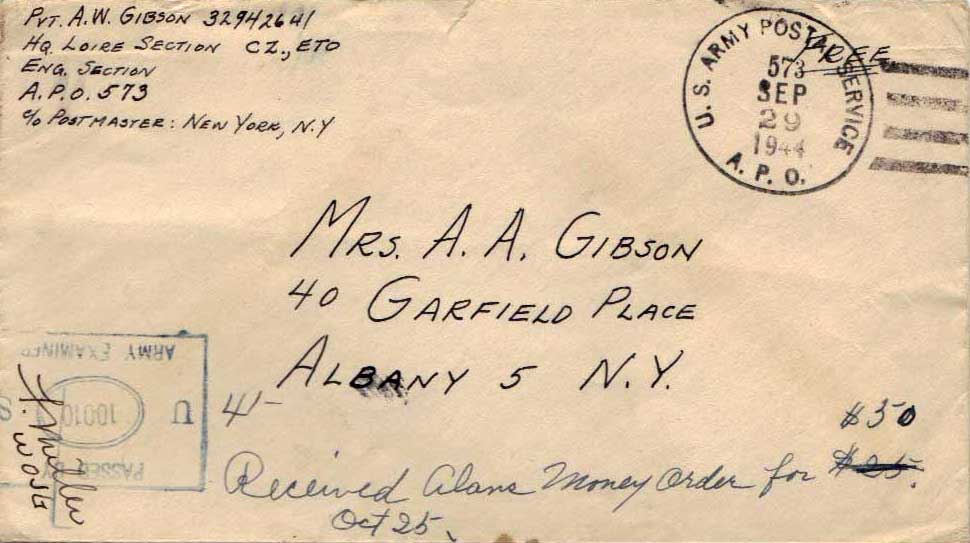 Pvt. A.W. Gibson 32942641
Hq. Loire Section CZ., ETO
Eng. Section
A.P.O. 573
c/o Postmaster: New York, N.Y
Free
U.S. ARMY POSTAL SERVICE
573
SEP
29
1944
A.P.O.
Mrs. A. A. Gibson
40 Garfield Place
Albany 5 N.Y.
41-
$30
Received Alans Money Order for $25.
Oct 25.
PASSED BY
U S
10010
ARMY EXAMINER
WOJG